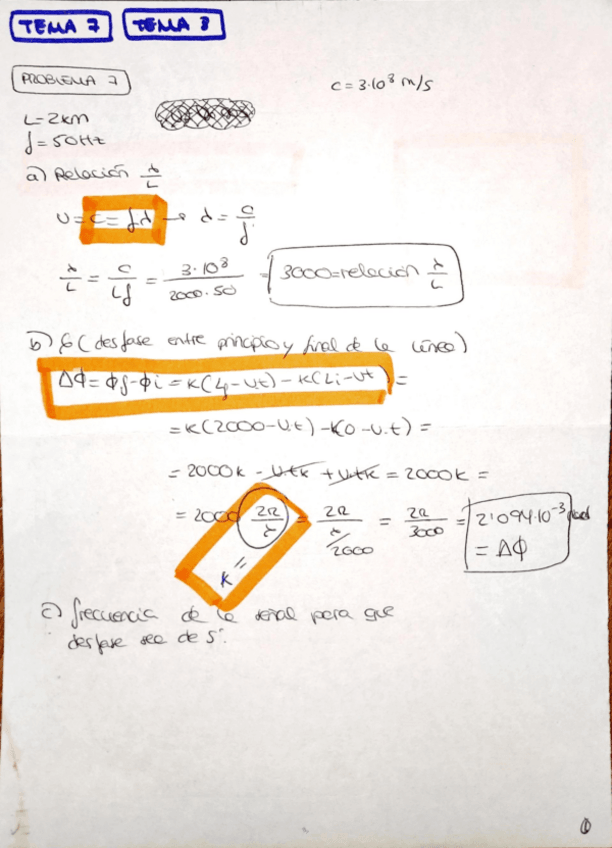 TEMA 7 TEMA 8
PROBLEMA 7
c = 3·10⁸ m/s
L = 2km
f = 50Hz
a) Relación λ/L
v = c = fλ → λ = c/f
λ/L = c/Lf = 3·10⁸/2000·50 = 3000 = relación λ/L
b) (desfase entre principio y final de la línea)
ΔΦ = Φf - Φi = K(Lf - vt) - K(Li - vt) =
= K(2000 - v.t) - K(0 - v.t) =
= 2000K - vtK + vtK = 2000K =
= 2000 2π/λ = 2π/λ/2000 = 2π/3000 = 2'094·10⁻³ rad
K = = ΔΦ
c) frecuencia de la señal para que
desfase sea de 5°.
1